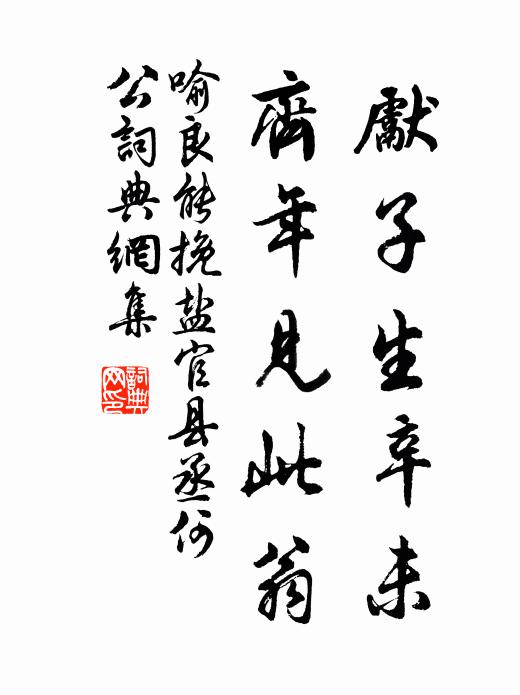 獻子生辛未
齊年見此翁
喻良能挽盐官县丞何
公詞典網集
詞典网印